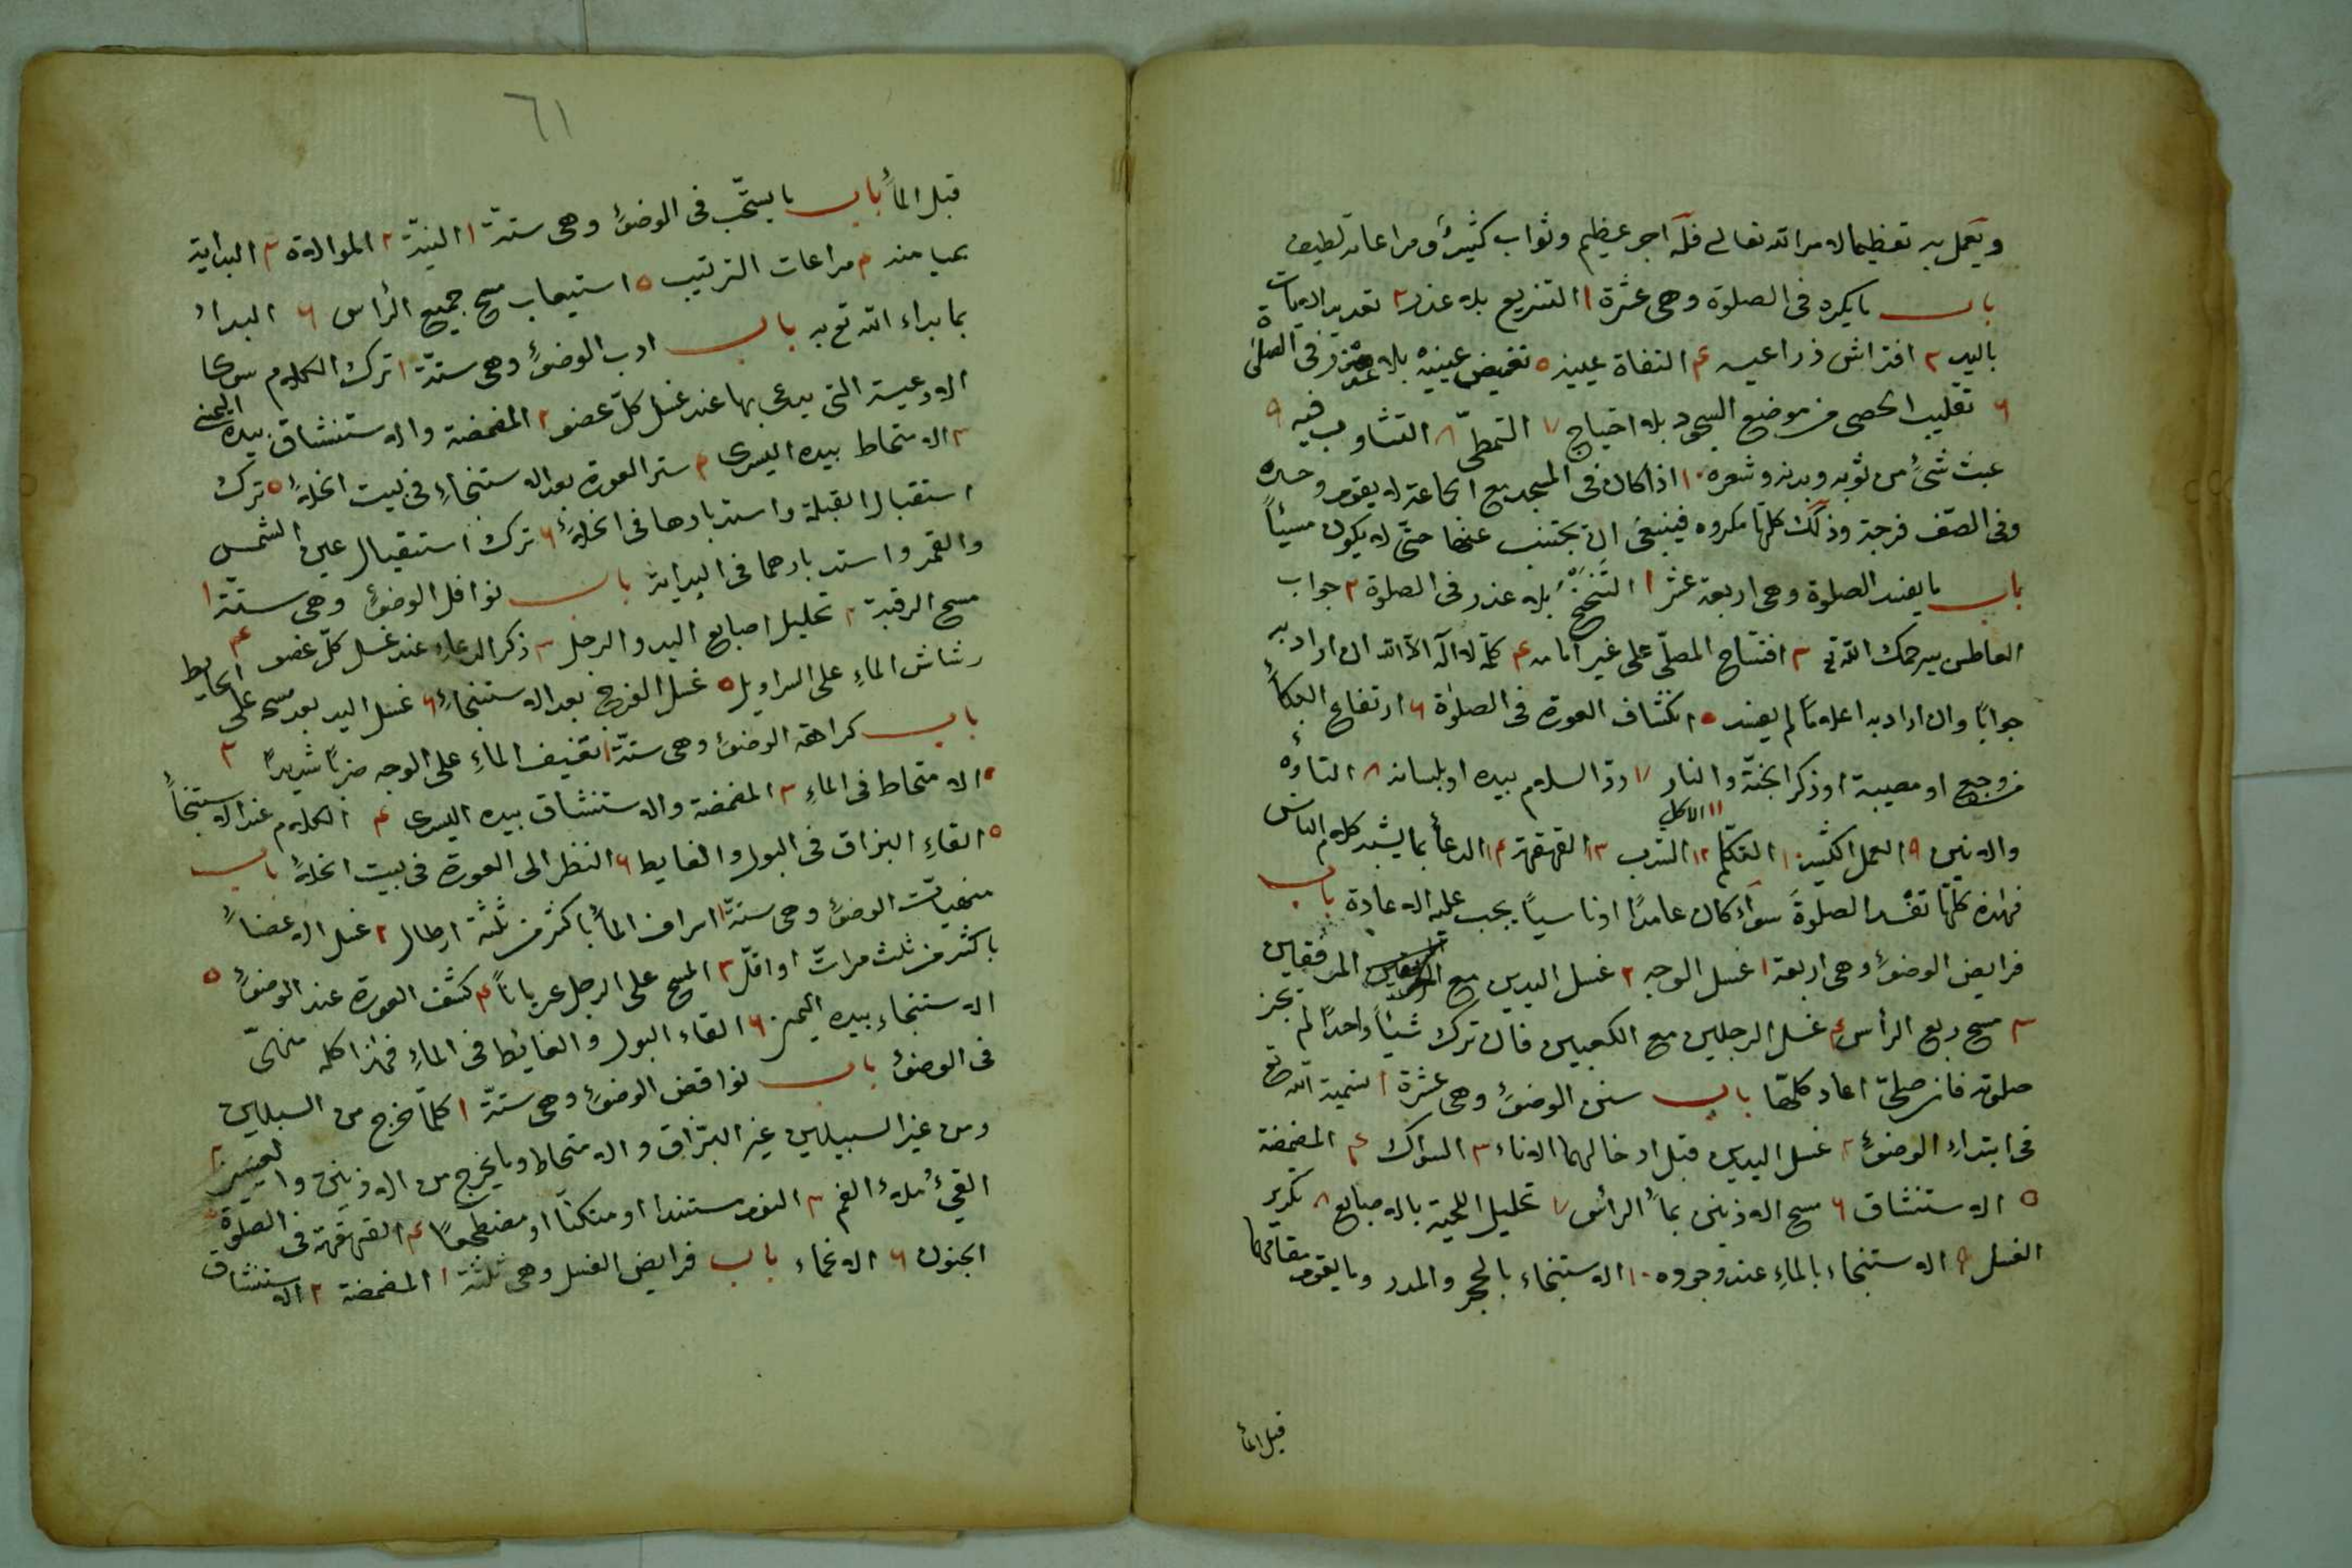 ويعمل به تعظيما لامر الله تعالى فله اجر عظيم وثواب كثير ومراعاته لطيف
باب ما يكره فى الصلوة وهى عشرة ١ التربع بلا عذر ٢ تعديد الايات
باليد ٣ افتراش ذراعيه ٤ التفاة يمينه ٥ تغميض عينيه بلا عذر فى الصلوة
٦ تقليب الحصى من موضع السجود بلا احتياج ٧ التمطّى ٨ التثاوب فيه ٩
عبث شئ من ثوبه وبدنه وشعره ١٠ اذا كان فى المسجد مع الجماعة لا يقوم وحده
وفى الصف فرجة وذلك كلها مكروه فينبغى ان يجتنب عنها حتى لا يكون مسيئاً
باب ما يفسد الصلوة وهى اربعة عشر ١ التنحنح بلا عذر فى الصلوة ٢ جواب
العاطس بيرحمك الله ٣ افتتاح المصلّى على غير امامه ٤ كلمة لا اله الا الله ان اراد به
جوابًا وان اراد به اعلامًا لم يفسد ٥ انكشاف العورة فى الصلوة ٦ ارتفاع البكاء
من وجع او مصيبة او ذكر الجنّة والنار ٧ ردّ السلام بيده او بلسانه ٨ التاوّه
والانين ٩ العمل الكثير ١٠ التكلم ١١ الاكل ١٢ الشرب ١٣ القهقهة ١٤ الدعاء بما يشبه كلام الناس
فهذه كلها تفسد الصلوة سواء كان عامدًا او ناسيًا يجب عليه الاعادة باب
فرايض الوضوء وهى اربعة ١ غسل الوجه ٢ غسل اليدين مع المرفقين
٣ مسح ربع الرأس ٤ غسل الرجلين مع الكعبين فان ترك شيئاً واحدًا لم يجز
صلوته فان صلّى اعاد كلّها باب سنن الوضوء وهى عشرة ١ تسمية الله تع
فى ابتداء الوضوء ٢ غسل اليدين قبل ادخالهما الاناء ٣ السواك ٤ المضمضة
٥ الاستنشاق ٦ مسح الاذنين بماء الرأس ٧ تخليل اللحية بالاصابع ٨ تكرير
الغسل ٩ الاستنجاء بالماء عند وجوده ١٠ الاستنجاء بالحجر والمدر وما يقوم مقامهما
قبل الماء
٦١
قبل الماء باب ما يستحبّ فى الوضوء وهى ستّة ١ النيّة ٢ الموالاة ٣ البداية
بميامنه ٤ مراعات الترتيب ٥ استيعاب مسح جميع الرأس ٦ البداء
بما بداء الله تع به باب ادب الوضوء وهى ستّة ١ ترك الكلام سوى
الادعية التى يدعى بها عند غسل كلّ عضو ٢ المضمضة والاستنشاق بيده اليمنى
٣ الامتحاط بيده اليسرى ٤ ستر العورة بعد الاستنجاء فى بيت الخلاء ٥ ترك
استقبال القبلة واستدبارها فى الخلاء ٦ ترك استقبال عين الشمس
والقمر واستدبارهما فى البداية باب نوافل الوضوء وهى ستّة ١
مسح الرقبة ٢ تخليل اصابع اليد والرجل ٣ ذكر الدعاء عند غسل كلّ عضو ٤
رشاش الماء على السراويل ٥ غسل الفرج بعد الاستنجاء ٦ غسل اليد بعد مسح على الحايط
باب كراهة الوضوء وهى ستّة ١ تعنيف الماء على الوجه ضربًا شديدًا ٢
الامتحاط فى الماء ٣ المضمضة والاستنشاق بيده اليسرى ٤ الكلام عند الاستنجاء
٥ القاء البزاق فى البول والغايط ٦ النظر الى العورة فى بيت الخلاء باب
منهيات الوضوء وهى ستّة ١ اسراف الماء باكثر من ثلثة ارطال ٢ غسل الاعضاء
باكثر من ثلث مرات او اقلّ ٣ المسح على الرجل عرياناً ٤ كشف العورة عند الوضوء ٥
الاستنجاء بيده اليمين ٦ القاء البول والغائط فى الماء فهذا كله منهىّ
فى الوضوء باب نواقض الوضوء وهى ستّة ١ كلما خرج من السبيلين
ومن غير السبيلين غير البزاق والامتحاط وما يخرج من الاذنين والعينين ٢
القئ ملاء الفم ٣ النوم مستندا او متكئًا او مضطجعًا ٤ القهقهة فى الصلوة ٥
الجنون ٦ الاغماء باب فرايض الغسل وهى ثلثة ١ المضمضة ٢ الاستنشاق